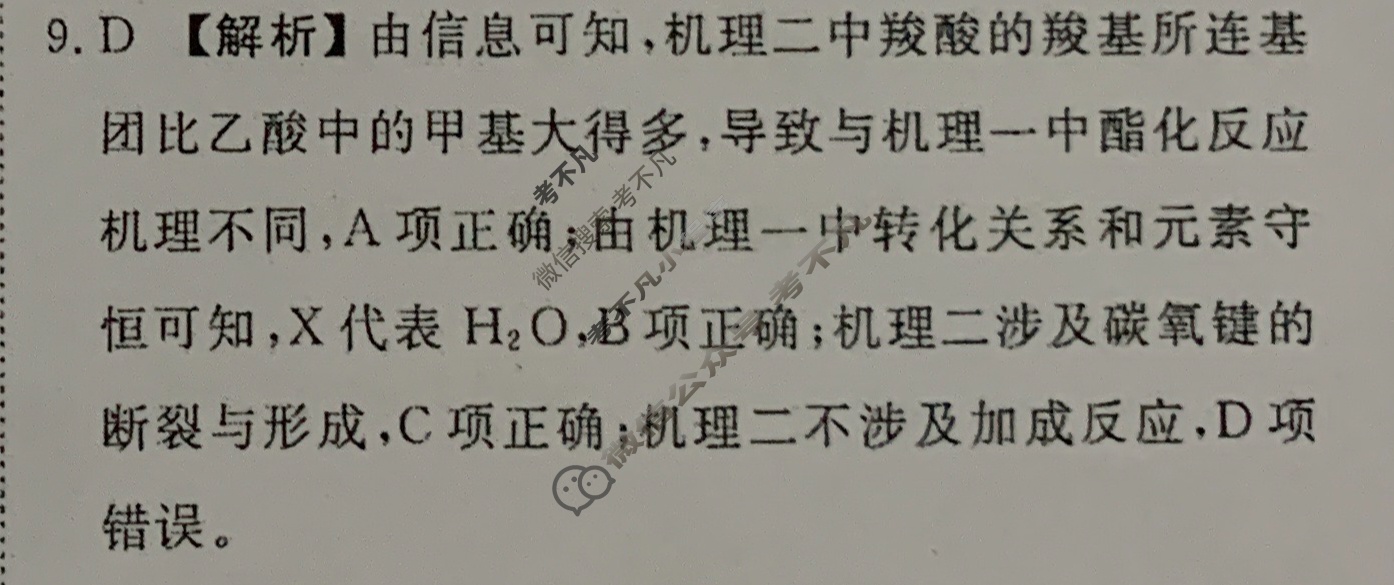 9. D 【解析】由信息可知,机理二中羧酸的羧基所连基
团比乙酸中的甲基大得多,导致与机理一中酯化反应
机理不同,A 项正确;由机理一中转化关系和元素守
恒可知,X 代表 H₂O,B 项正确;机理二涉及碳氧键的
断裂与形成,C 项正确;机理二不涉及加成反应,D 项
错误。
考不凡
微信搜索考不凡
考不凡小
微信公众号考不凡